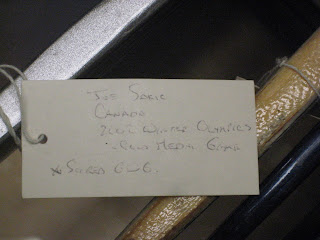 Joe Sakic
Canada
2002 Winter Olympics
- Gold Medal Game
* Scored GWG.